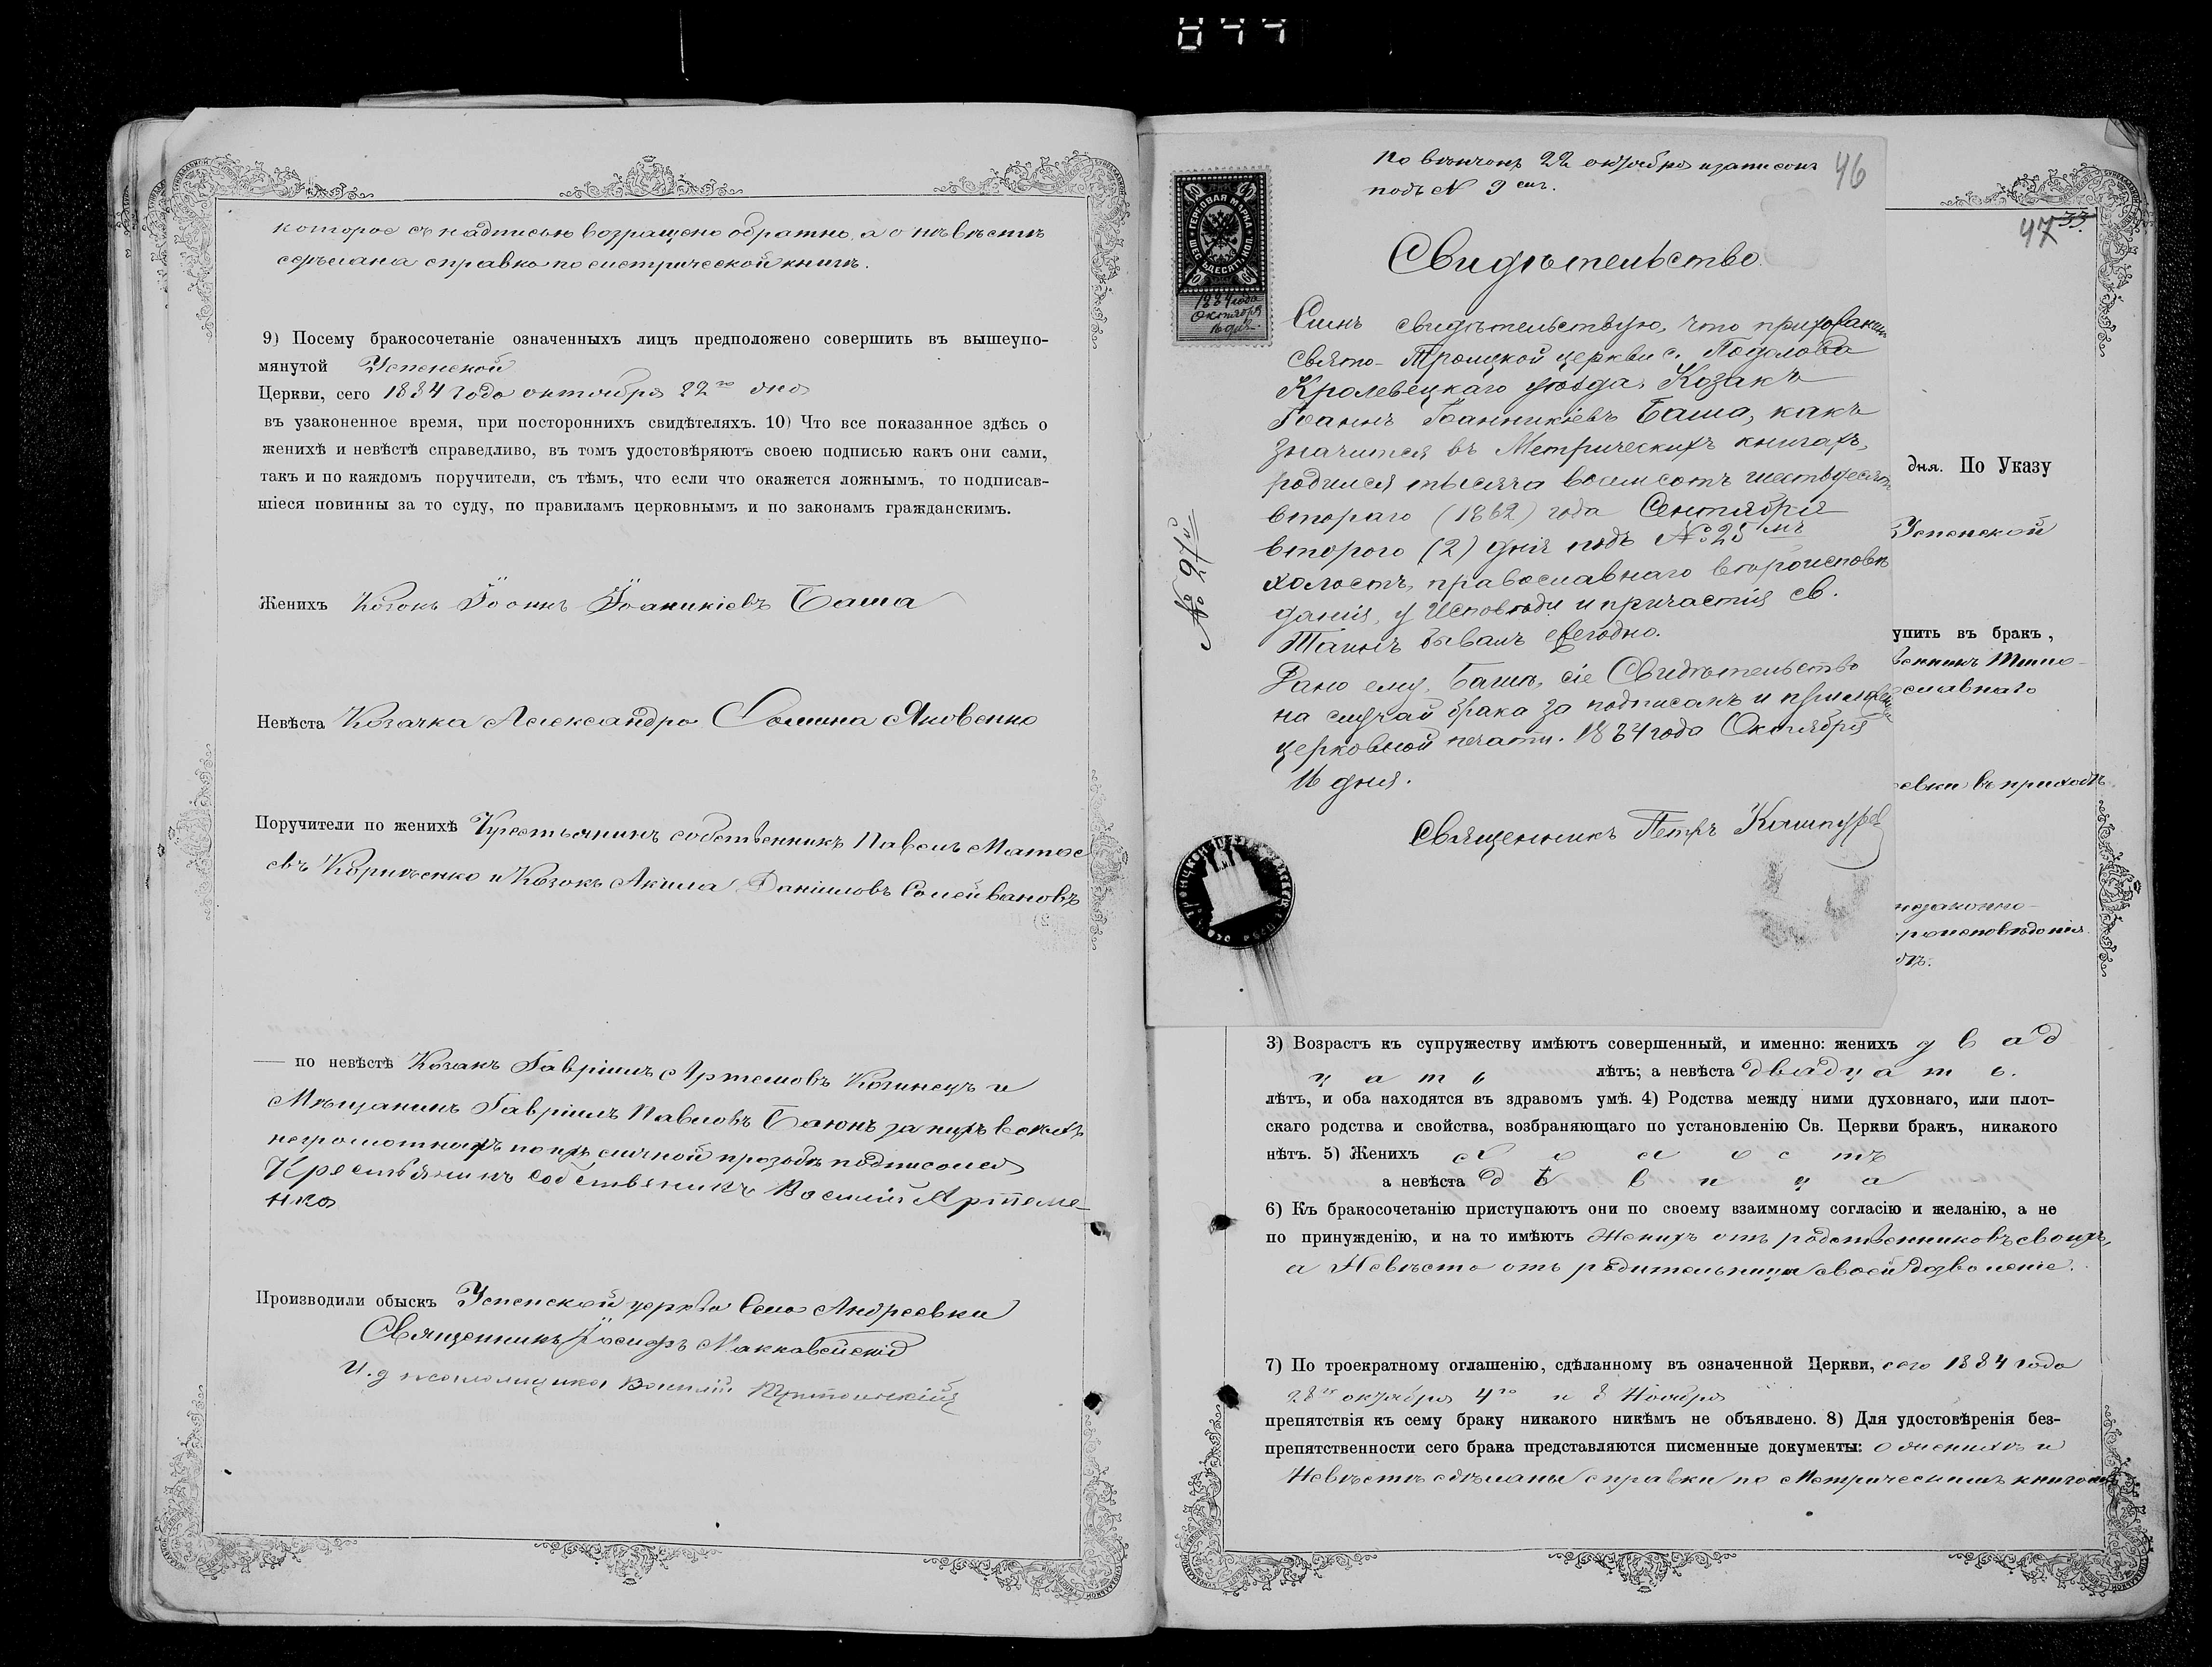 которое съ надписью возращено обратно, а о невѣстѣ
сдѣлана справка по метрической книгѣ.
9) Посему бракосочетаніе означенныхъ лицъ предположено совершить въ вышеупо-
мянутой Успенской
Церкви, сего 1884 года октября 22го дня
въ узаконенное время, при постороннихъ свидѣтеляхъ. 10) Что все показанное здѣсь о
женихѣ и невѣстѣ справедливо, въ томъ удостовѣряютъ своею подписью какъ они сами,
такъ и по каждомъ поручители, съ тѣмъ, что если что окажется ложнымъ, то подписав-
шіеся повинны за то суду, по правиламъ церковнымъ и по законамъ гражданскимъ.
Женихъ Козакъ Іоаннъ Іоаникіевъ Баша
Невѣста Козачка Александра Яковенко
Поручители по женихѣ Крестьянинъ собственникъ Павелъ Матѳе
евъ и Козакъ Акила Даніиловъ Солейвановъ
— по невѣстѣ Козакъ Гавріилъ Артемовъ Козинецъ и
Мѣщанинъ Гавріилъ Павловъ Баюнъ за нихъ всѣхъ
неграмотныхъ по ихъ личной прозьбѣ подписался
Крестьянинъ собственикъ Василій Артеме
нко
Производили обыскъ Успенской церкви села Андреевки
Священникъ Іосифъ Маккавейскій
И. д псаломщика Василій
044
Повѣнчанъ 22 октября и записанъ
подъ № 9 емъ.
46
47 33.
ГЕРБОВАЯ МАРКА
ШЕСТЬДЕСЯТЪ КОП.
1884 года
Октября
16 дня.
Свидѣтельство
№ 97й
Симъ свидѣтельствую, что прихожанинъ
Свято-Троицкой церкви с. Подолова
Кролевецкаго уѣзда, Козакъ
Іоаннъ Іоанникіевъ Баша, какъ
значится въ Метрическихъ книгахъ,
родился тысяча восемсотъ шестьдесятъ
втораго (1862) года Сентября
второго (2) дня подъ № 25мъ
холостъ, православнаго вѣроисповѣ
данія, у Исповѣди и причастія св.
Таинъ бывалъ ежегодно.
Дано ему, Башѣ, сіе Свидѣтельство
на случай брака за подписомъ и приложеніемъ
церковной печати. 1884 года Октября
16 дня.
Священникъ Петръ
дня. По Указу
Успенской
упить въ бракъ,
славнаго
евки въ приходѣ
незаконно-
роисповѣданія.
3) Возрастъ къ супружеству имѣютъ совершенный, и именно: женихъ двад
цать лѣтъ; а невѣста двадцать.
лѣтъ, и оба находятся въ здравомъ умѣ. 4) Родства между ними духовнаго, или плот-
скаго родства и свойства, возбраняющаго по установленію Св. Церкви бракъ, никакого
нѣтъ. 5) Женихъ холостъ
а невѣста дѣвица
6) Къ бракосочетанію приступаютъ они по своему взаимному согласію и желанію, а не
по принужденію, и на то имѣютъ Женихъ отъ родственниковъ своихъ,
а Невѣста отъ родительницы своей дозволеніе.
7) По троекратному оглашенію, сдѣланному въ означенной Церкви, сего 1884 года
28го октября 4го и 8 Ноября
препятствія къ сему браку никакого никѣмъ не объявлено. 8) Для удостовѣренія без-
препятственности сего брака представляются писменные документы: о женихѣ и
Невѣстѣ сдѣланы справки по Метрическимъ книгамъ